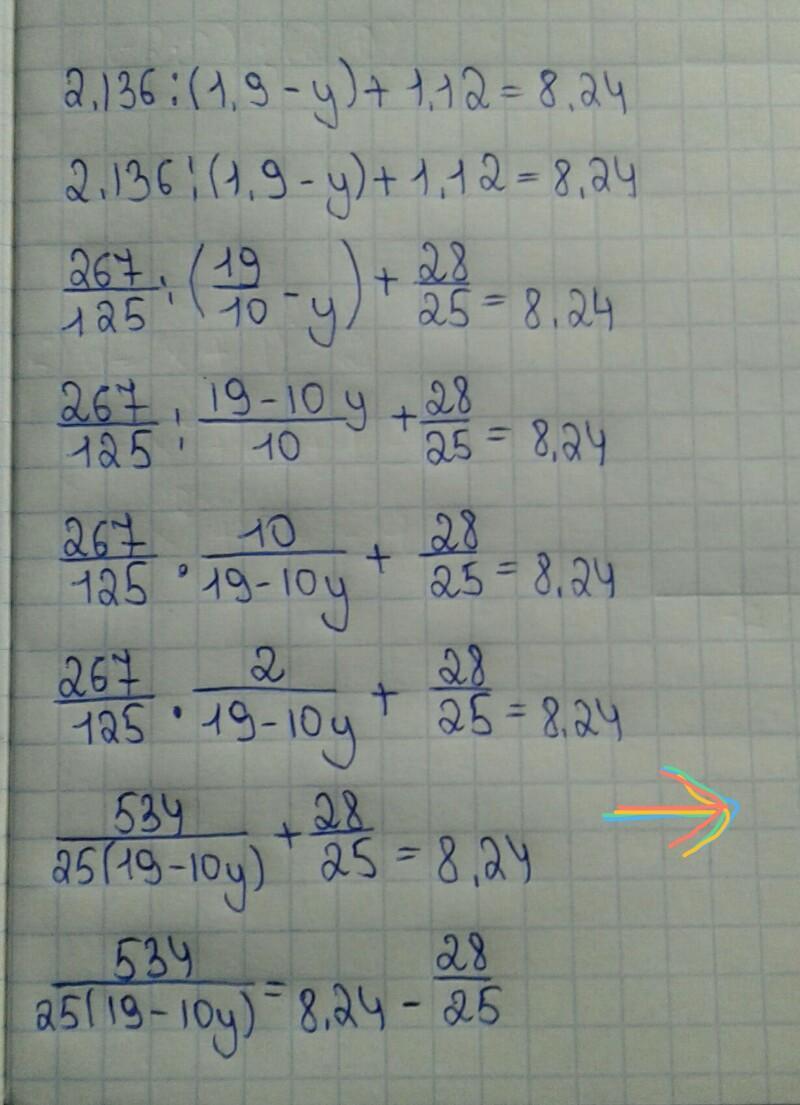 2.136:(1,9-y)+1,12=8.24
2.136:(1,9-y)+1,12=8,24
267/125:(19/10-y)+28/25=8.24
267/125:(19-10y)/10+28/25=8,24
267/125·10/(19-10y)+28/25=8,24
267/125·2/(19-10y)+28/25=8,24
534/25(19-10y)+28/25=8,24
534/25(19-10y)=8,24-28/25